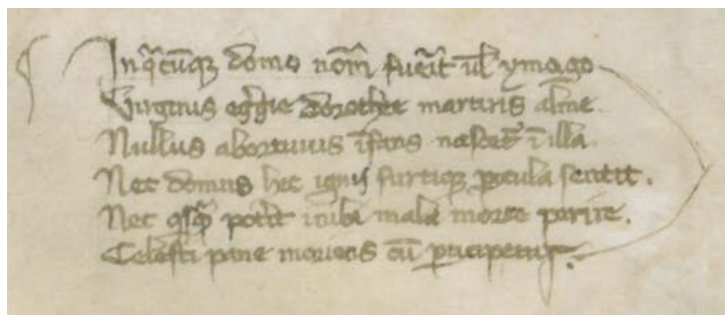 In q̄cūqꝫ domo nom̄ fūit ul̉ ymago
Virginis eg̉gie dorothee martiris alme
Nullus abortiuus īfans nascet̉ ī illa
Nec domus hec ignis furtiqꝫ ꝑicula sentit.
Nec q̉sq̄ᷓ pot̉it inibi mala morte perire.
Celesti pane moriens cū ꝑticipetur.